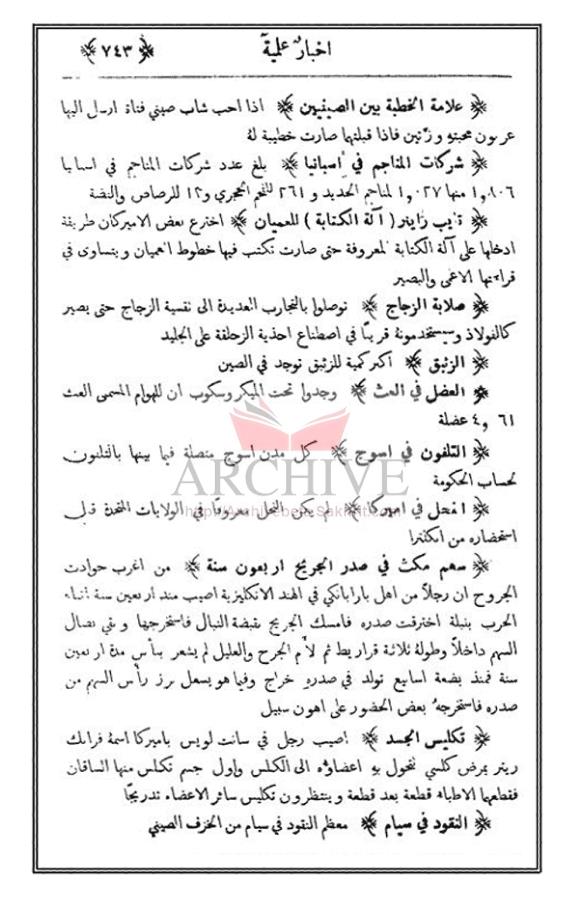 اخبار علمية ﴿ ٧٤٣ ﴾
﴿ علامة الخطبة بين الصينيين ﴾ اذا احب شاب صيني فتاة ارسل اليها
عربون محبته وزتين فاذا قبلتها صارت خطيبة له
﴿ شركات المناجم في اسبانيا ﴾ بلغ عدد شركات المناجم في اسبانيا
منها ١,٠٢٧ لمناجم الحديد و ٢٦١ للفحم الحجري و١٢ للرصاص والفضة
﴿ تايب رايتر ( آلة الكتابة ) للعميان ﴾ اخترع بعض الاميركان طريقة
ادخلها على آلة الكتابة المعروفة حتى صارت تكتب فيها خطوط العميان ويتساوى في
قراءتها الاعمى والبصير
﴿ صلابة الزجاج ﴾ توصلوا بالتجارب العديدة الى تقسية الزجاج حتى يصير
كالفولاذ وسيستخدمونه قريبًا في اصطناع احذية الزحلقة على الجليد
﴿ الزئبق ﴾ اكبر كمية للزئبق توجد في الصين
﴿ العضل في العث ﴾ وجدوا تحت الميكروسكوب ان للهوام المسمى العث
٤,٠٦١ عضلة
﴿ التلفون في اسوج ﴾ كل مدن اسوج متصلة فيما بينها بالتلفون
لحساب الحكومة
﴿ النحل في اميركا ﴾ لم يكن النحل معروفًا في الولايات المتحدة قبل
استحضاره من انكلترا
﴿ سهم مكث في صدر الجريح اربعون سنة ﴾ من اغرب حوادث
الجروح ان رجلاً من اهل بارابانكي في الهند الانكليزية اصيب منذ اربعين سنة اثناء
الحرب بنبلة اخترقت صدره فامسك الجريح بقبضة النبال فاستخرجها وبقي نصال
السهم داخلاً وطوله ثلاثة قراريط ثم لأم الجرح والعليل لم يشعر ببأس مدة اربعين
سنة فمنذ بضعة اسابيع تولد في صدره خراج وفيما هو يسعل برز رأس السهم من
صدره فاستخرجه بعض الحضور على اهون سبيل
﴿ تكليس الجسد ﴾ اصيب رجل في سانت لويس باميركا اسمه فرانك
ريتر بمرض كلسي تتحول به اعضاؤه الى الكلس واول جسم تكلس منها الساقان
فقطعها الاطباء قطعة بعد قطعة وينتظرون تكليس سائر الاعضاء تدريجًا
﴿ النقود في سيام ﴾ معظم النقود في سيام من الخزف الصيني
ARCHIVE